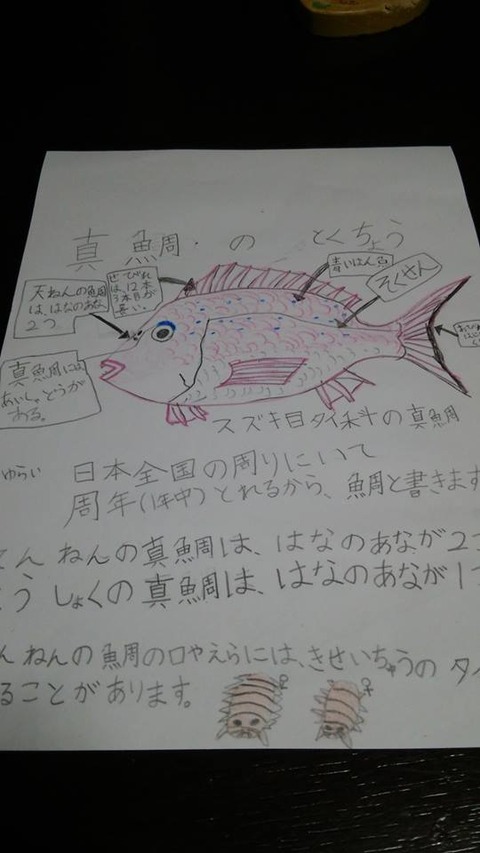 真鯛のとくちょう
せびれ
は12本
3本目が
長い。
青いはん点
そくせん
天ねんの鯛
は、はなのあな
2つ
真鯛には
あいしゃどうが
ある。
スズキ目タイ科の真鯛
ゆらい
日本全国の周りにいて
周年(1年中)とれるから、鯛と書きます
てんねんの真鯛は、はなのあなが2つ
ようしょくの真鯛は、はなのあなが1つ
んねんの鯛の口やえらには、きせいちゅうのタイ
ることがあります。
♀